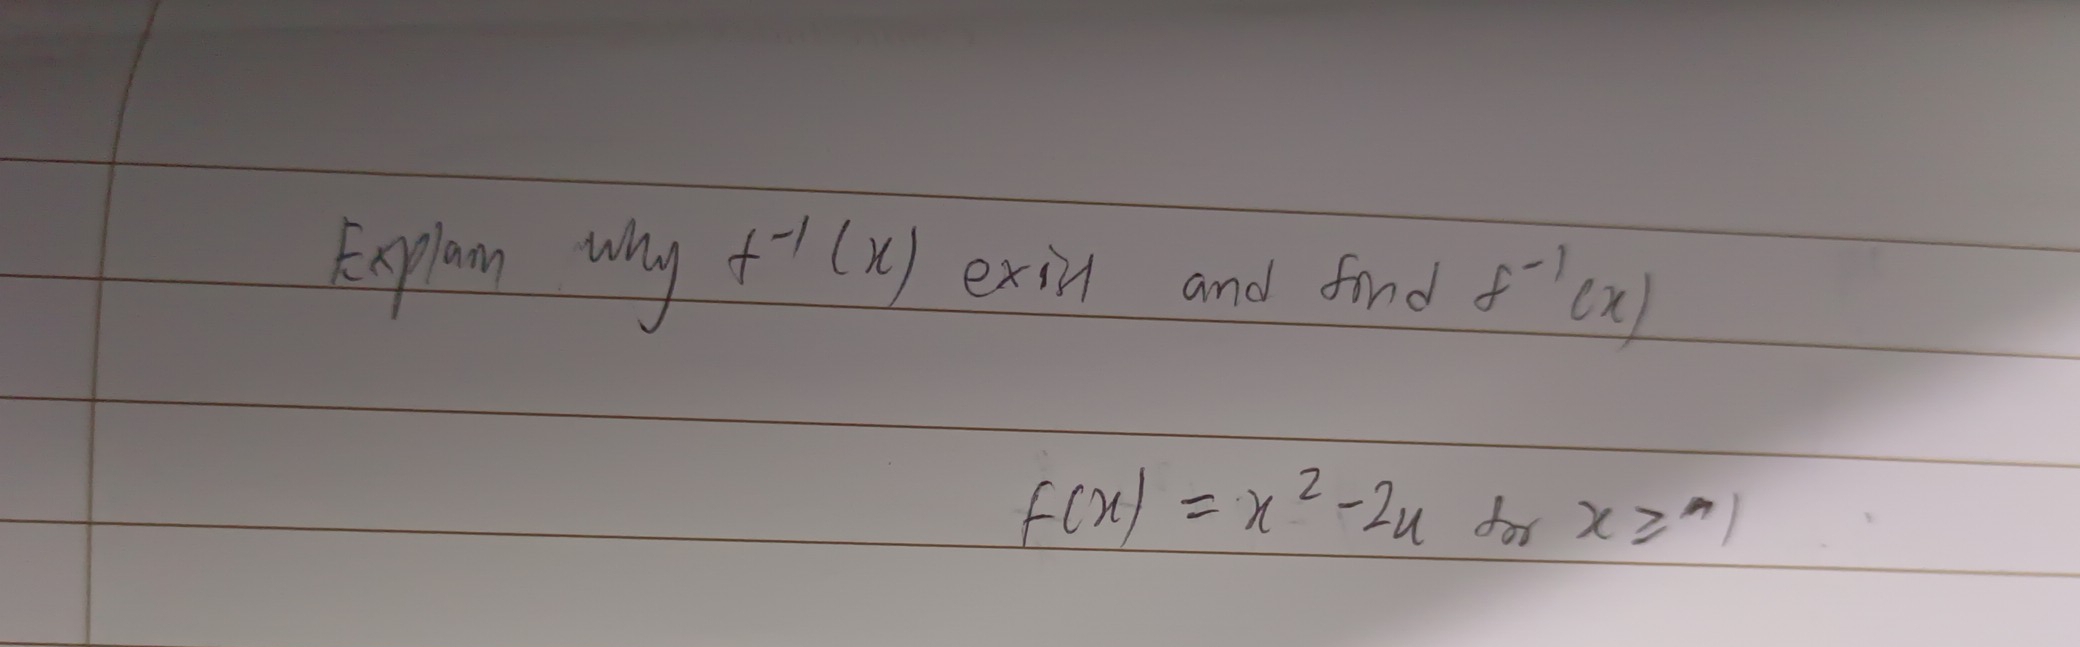 Explain why f⁻¹(x) exist and find f⁻¹(x)
f(x) = x² - 2x for x ≥ 1